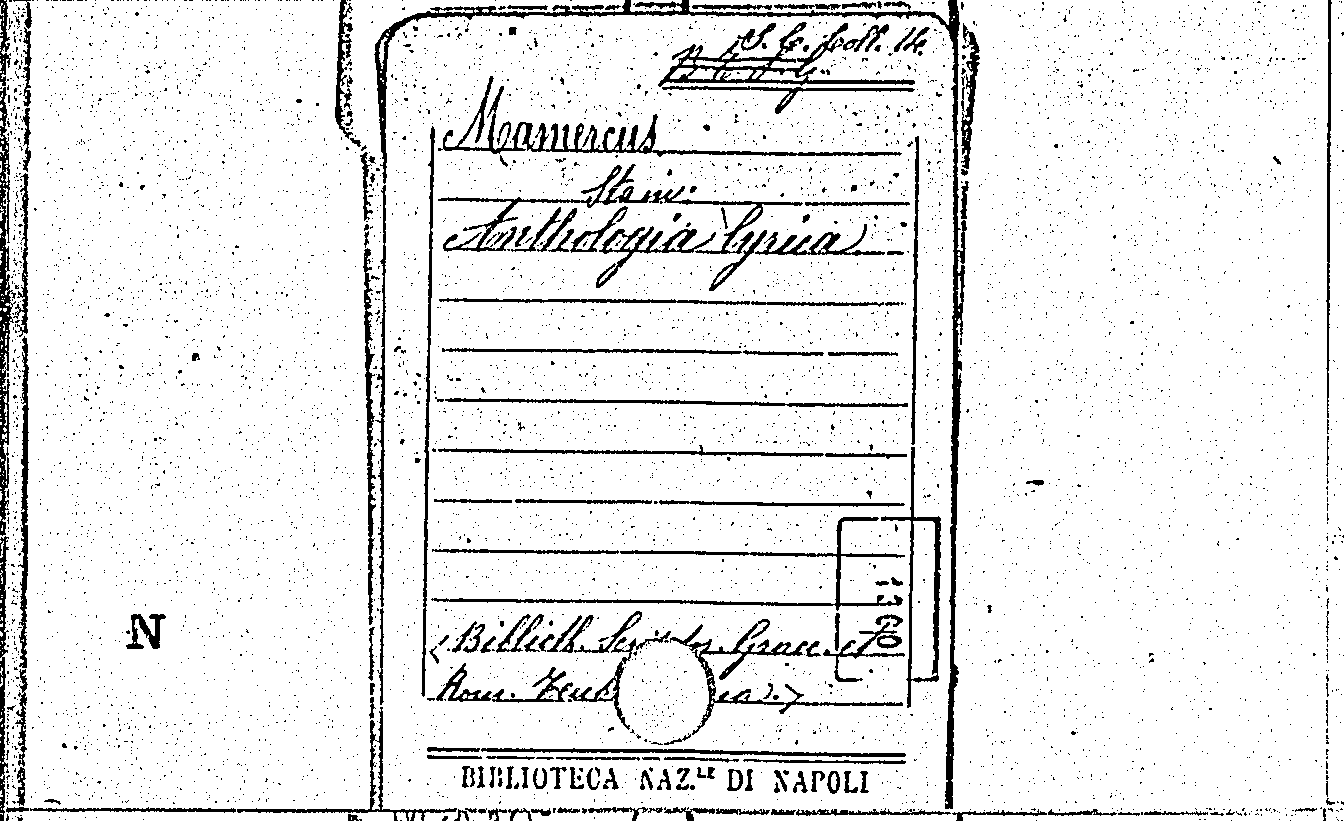 S. G. Coll. 14.
Mamercus
Stein:
Anthologia lyrica
N
1390
(Biblioth. Scriptor. Graec. et
Rom. Teub
BIBLIOTECA NAZ.LE DI NAPOLI